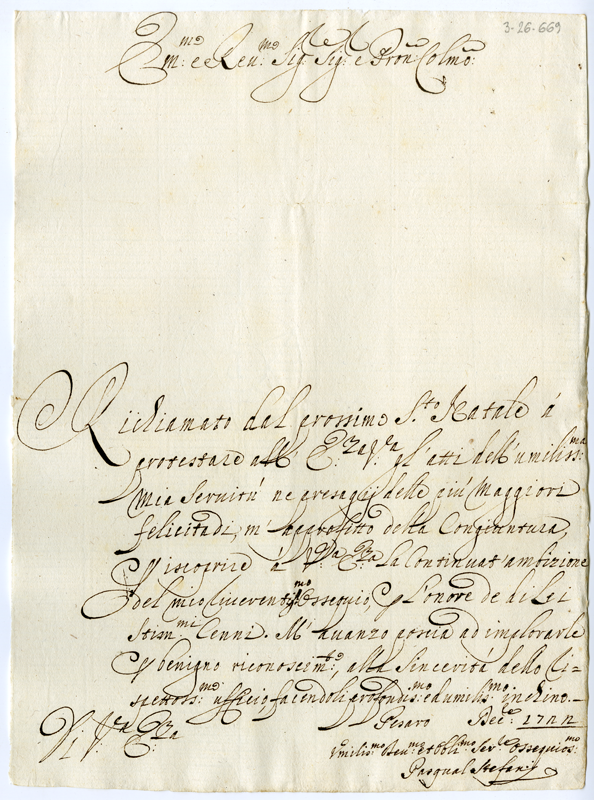 3-26-669
Em:mo e Reu:mo Sig: Sig: e Pron: Colmo:
Richiamato dal prossimo S.to Natale á
protestare all' E:za V:a gl'atti dell' umiliss:ma
mia Seruitú ne presagij delle piú Maggiori
felicitadi, m' approfitto della Congiuntura,
P iscoprire á V:a E:za La Continuat' ambizione
del mio riuerentis:mo Ossequio, P L'onore de di Lei
Stim:mi Cenni. M' auanzo poscia ad implorarle
P benigno riconoscim:to, alla Sincerità dello Ri=
spettos:mo ufficio facendoli profondis:mo ed umilis:mo inchino.
Di V:a E:za
Pesaro Dec:e 1722
Vmilis:mo Deu:mo et obli:mo Ser:e Ossequios:mo
Pasqual Stefanij